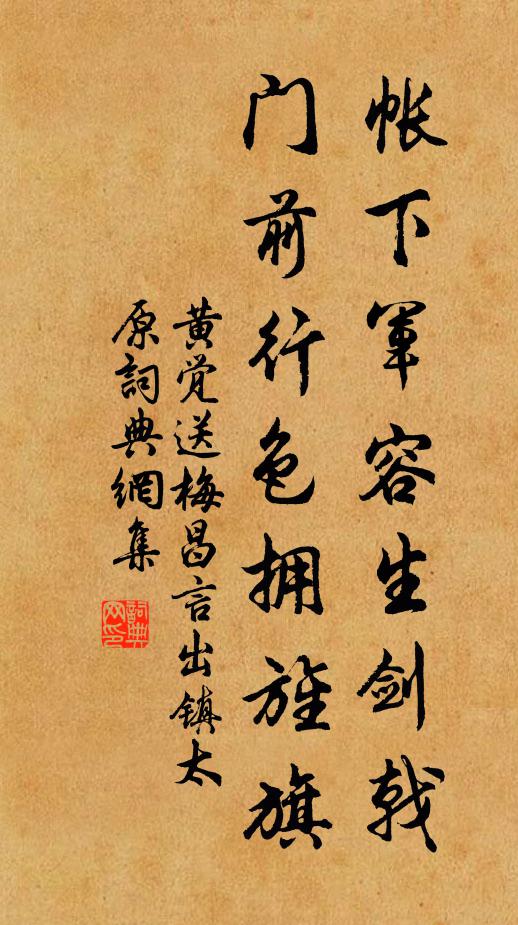 帐下军容生剑戟
门前行色拥旌旗
黄觉送梅昌言出镇太
原词典網集
詞典
网印